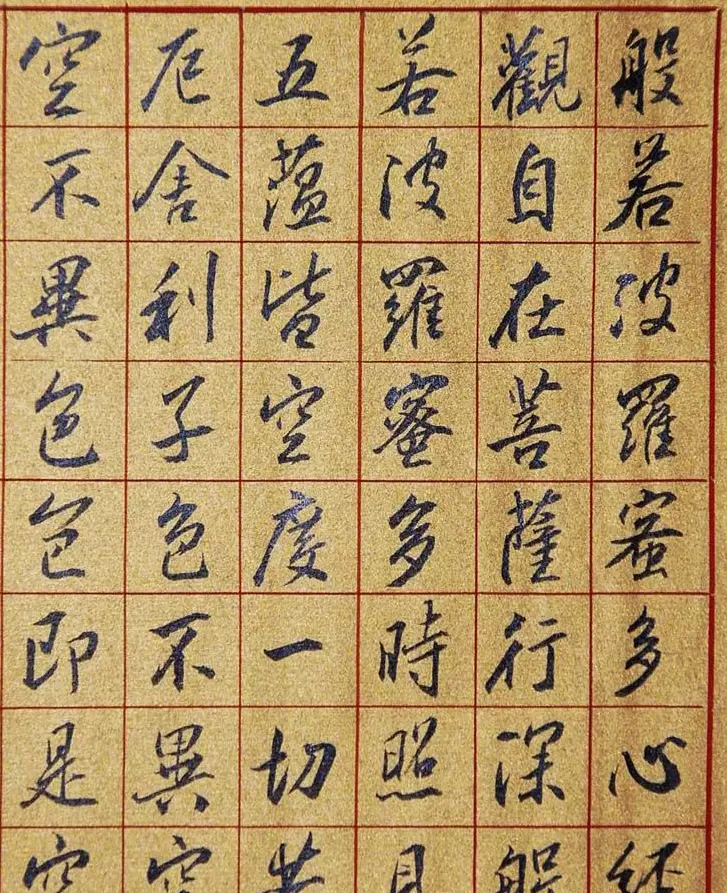 般若波羅蜜多心經
觀自在菩薩行深般
若波羅蜜多時照見
五蘊皆空度一切苦
厄舍利子色不異空
空不異色色即是空